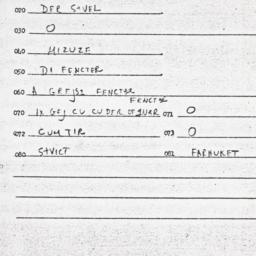 020 DER SWEL
030 O
040 MIZUZE
050 DI FENCTER
060 A GREJSE FENCTER
FENCTER
070 IX GEJ CU CU DER 071 O
072 CUM TIR 073 O
080 STVICT 081 FARHUKET